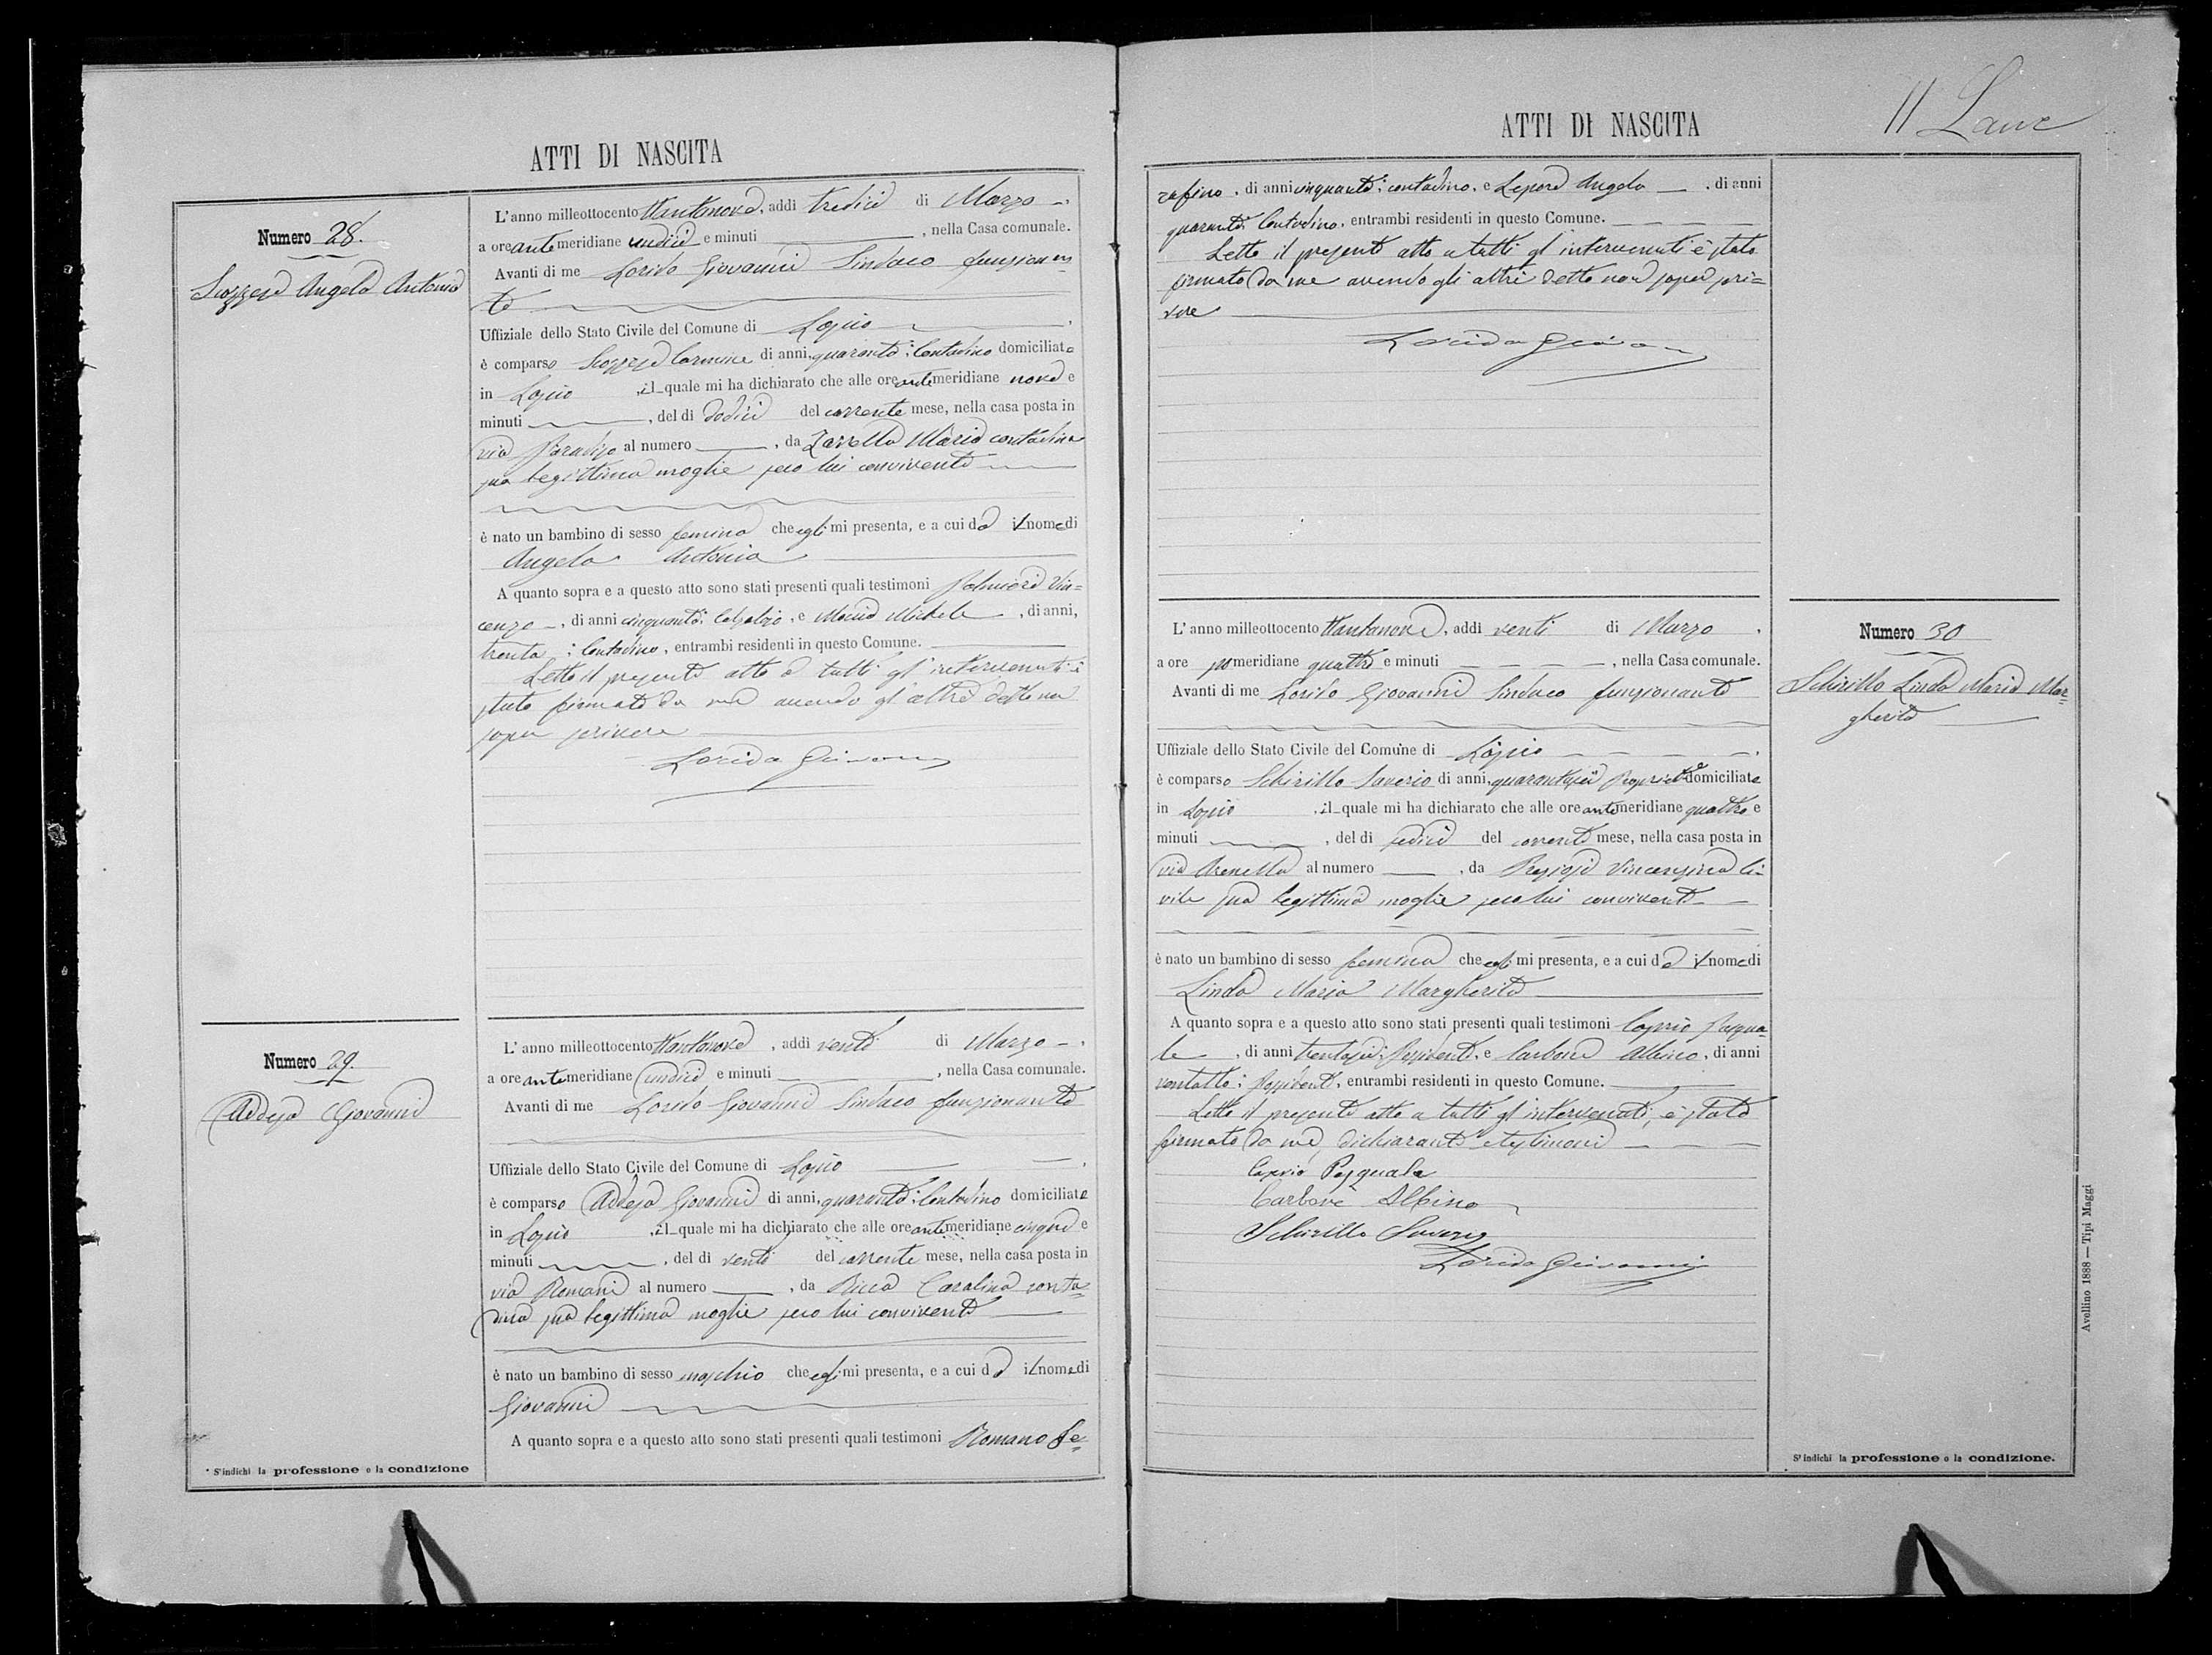 ATTI DI NASCITA
Numero 28.
Angela Antonia
L'anno milleottocento ttantanove, addì tredici di Marzo
a ore antemeridiane undici e minuti , nella Casa comunale.
Avanti di me Lorido Giovanni Sindaco funzionan
te
Uffiziale dello Stato Civile del Comune di Lapio
è comparso Carmine di anni, quaranta; Contadino domiciliato
in Lapio , il quale mi ha dichiarato che alle ore antemeridiane nove e
minuti , del dì dodici del corrente mese, nella casa posta in
via Paradiso al numero , da Zarrella Maria contadina
sua legittima moglie seco lui convivente
è nato un bambino di sesso femina che egli mi presenta, e a cui dà il nome di
Angela Antonia
A quanto sopra e a questo atto sono stati presenti quali testimoni Vin=
cenzo, di anni cinquanta; Calzolaio, e Michele , di anni,
trenta; Contadino, entrambi residenti in questo Comune.
Letto il presente atto a tutti gl'intervenuti è
stato firmato da me avendo gl'altri detto non
saper scrivere
Lorido Giovanni
Numero 29.
Addesa Giovanni
L'anno milleottocento ttantanove, addì venti di Marzo
a ore antemeridiane undici e minuti , nella Casa comunale.
Avanti di me Lorido Giovanni Sindaco funzionante
Uffiziale dello Stato Civile del Comune di Lapio
è comparso Addesa Giovanni di anni, quaranta; Contadino domiciliato
in Lapio , il quale mi ha dichiarato che alle ore antemeridiane cinque e
minuti , del dì venti del corrente mese, nella casa posta in
via Romani al numero , da conta=
dina sua legittima moglie seco lui convivente
è nato un bambino di sesso maschio che egli mi presenta, e a cui dà il nome di
Giovanni
A quanto sopra e a questo atto sono stati presenti quali testimoni Romano Se=
* S'indichi la professione o la condizione
ATTI DI NASCITA
11
rafino, di anni cinquanta; contadino, e Lepore Angelo , di anni
quaranta Contadino, entrambi residenti in questo Comune.
Letto il presente atto a tutti gl'intervenuti è stato
firmato da me avendo gli altri detto non saper scri=
vere
Lorido Giovan
L'anno milleottocento ttantanove, addì venti di Marzo
a ore pomeridiane quattro e minuti , nella Casa comunale.
Avanti di me Lorido Giovanni Sindaco funzionante
Uffiziale dello Stato Civile del Comune di Lapio
è comparso Schirillo Saverio di anni, quarantasei domiciliato
in Lapio , il quale mi ha dichiarato che alle ore antemeridiane quattro e
minuti , del dì sedici del corrente mese, nella casa posta in
via Arenella al numero , da Vincenzina Ci=
vile sua legittima moglie seco lui convivente
è nato un bambino di sesso femina che egli mi presenta, e a cui dà il nome di
Linda Maria Margherita
A quanto sopra e a questo atto sono stati presenti quali testimoni Caprio Pasqua=
le , di anni trentasei; Possidente, e Carbone Albino, di anni
ventotto; Possidente, entrambi residenti in questo Comune.
Letto il presente atto a tutti gl'intervenuti, è stato
firmato da me, dichiarante e testimoni
Caprio Pasquale
Carbone Albino
Schirillo Saverio
Lorido Giovanni
Numero 30
Schirillo Linda Maria Mar=
gherita
S'indichi la professione o la condizione.
Avellino 1888 — Tipi Maggi